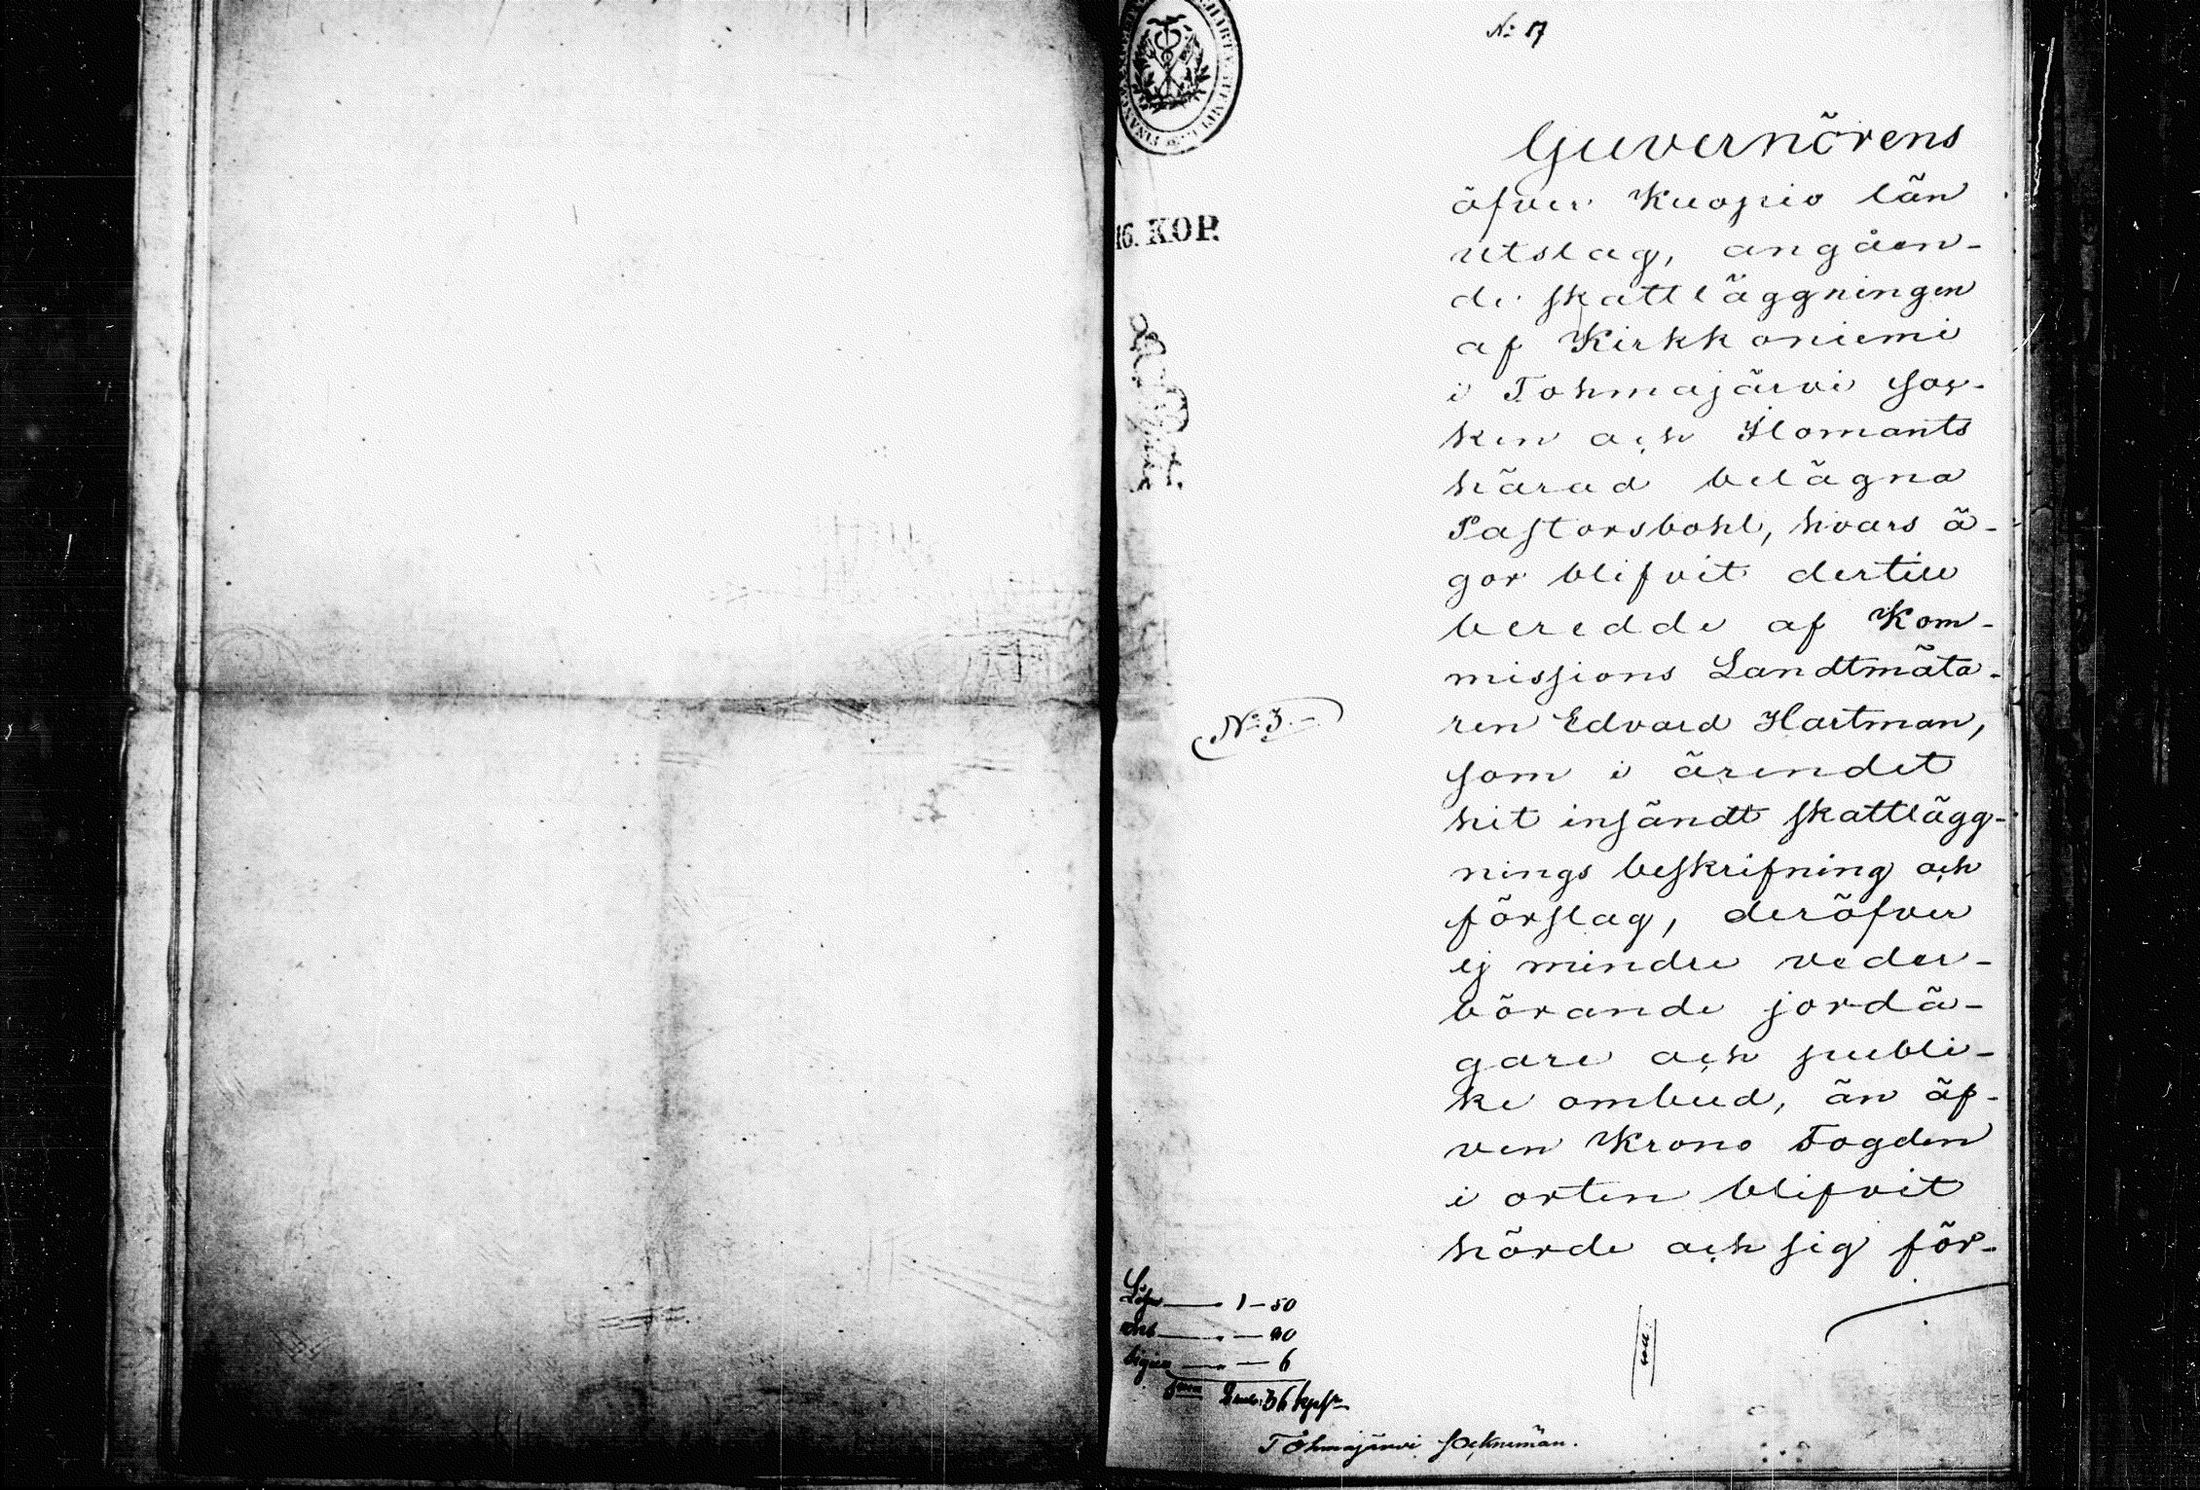 N: 17
16. KOP.
Guvernörens
öfver Kuopio län
utslag, angåen-
de skattläggningen
af Kirkkoniemi
i Tohmajärvi soc-
ken och Ilomants
härad belägna
Pastorsbohl, hvars ä-
gor blifvit dertill
beredde af Kom-
missions Landtmäta-
ren Edvard Hartman,
som i ärendet
hit insändt skattlägg-
nings beskrifning och
förslag, deröfver
ej mindre veder-
börande jordä-
gare och publi-
ke ombud, än äf-
ven Krono Fogden
i orten blifvit
hörde och sig för-
N: 3.
1 – 50
6
Tohmajärvi Socknemän.